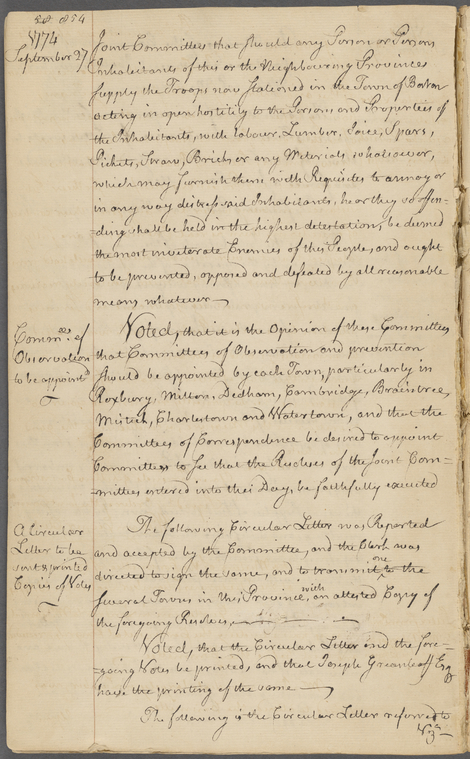 854
1774
September 27
Joint Committees that should any Person or Persons
Inhabitants of this or the Neighbouring Provinces
supply the Troops now stationed in the Town of Boston
acting in open hostility to the Persons and Properties of
the Inhabitants, with Labour, Lumber, Joice, Spars,
Pickets, Straw, Bricks or any Materials whatsoever,
which may furnish them with Requisites to annoy or
in any way distress said Inhabitants, he or they so offen-
ding shall be held in the highest detestation, be deemed
the most inveterate Enemies of this People, and ought
to be prevented, opposed and defeated by all reasonable
means whatever
Commees. of
Observation
to be appointd
Voted, that it is the Opinion of these Committees
that Committees of Observation and prevention
should be appointed by each Town, particularly in
Roxbury, Milton, Dedham, Cambridge, Braintree,
Mistick, Charlestown and Watertown, and that the
Committees of Correspondence be desired to appoint
Committees to see that the Resolves of the Joint Com-
=mittees entered into this Day, be faithfully executed
A Circular
Letter to be
sent & printed
Copies of Votes
The following Circular Letter was Reported
and accepted by the Committee, and the Clerk was
directed to sign the same, and to transmit one to the
several Towns in this Province, with an attested Copy of
the foregoing Resolves,
Voted, that the Circular Letter and the fore-
=going Votes be printed, and that Joseph Greenleaff Esq
have the printing of the same
The following is the Circular Letter referred to
Vzt